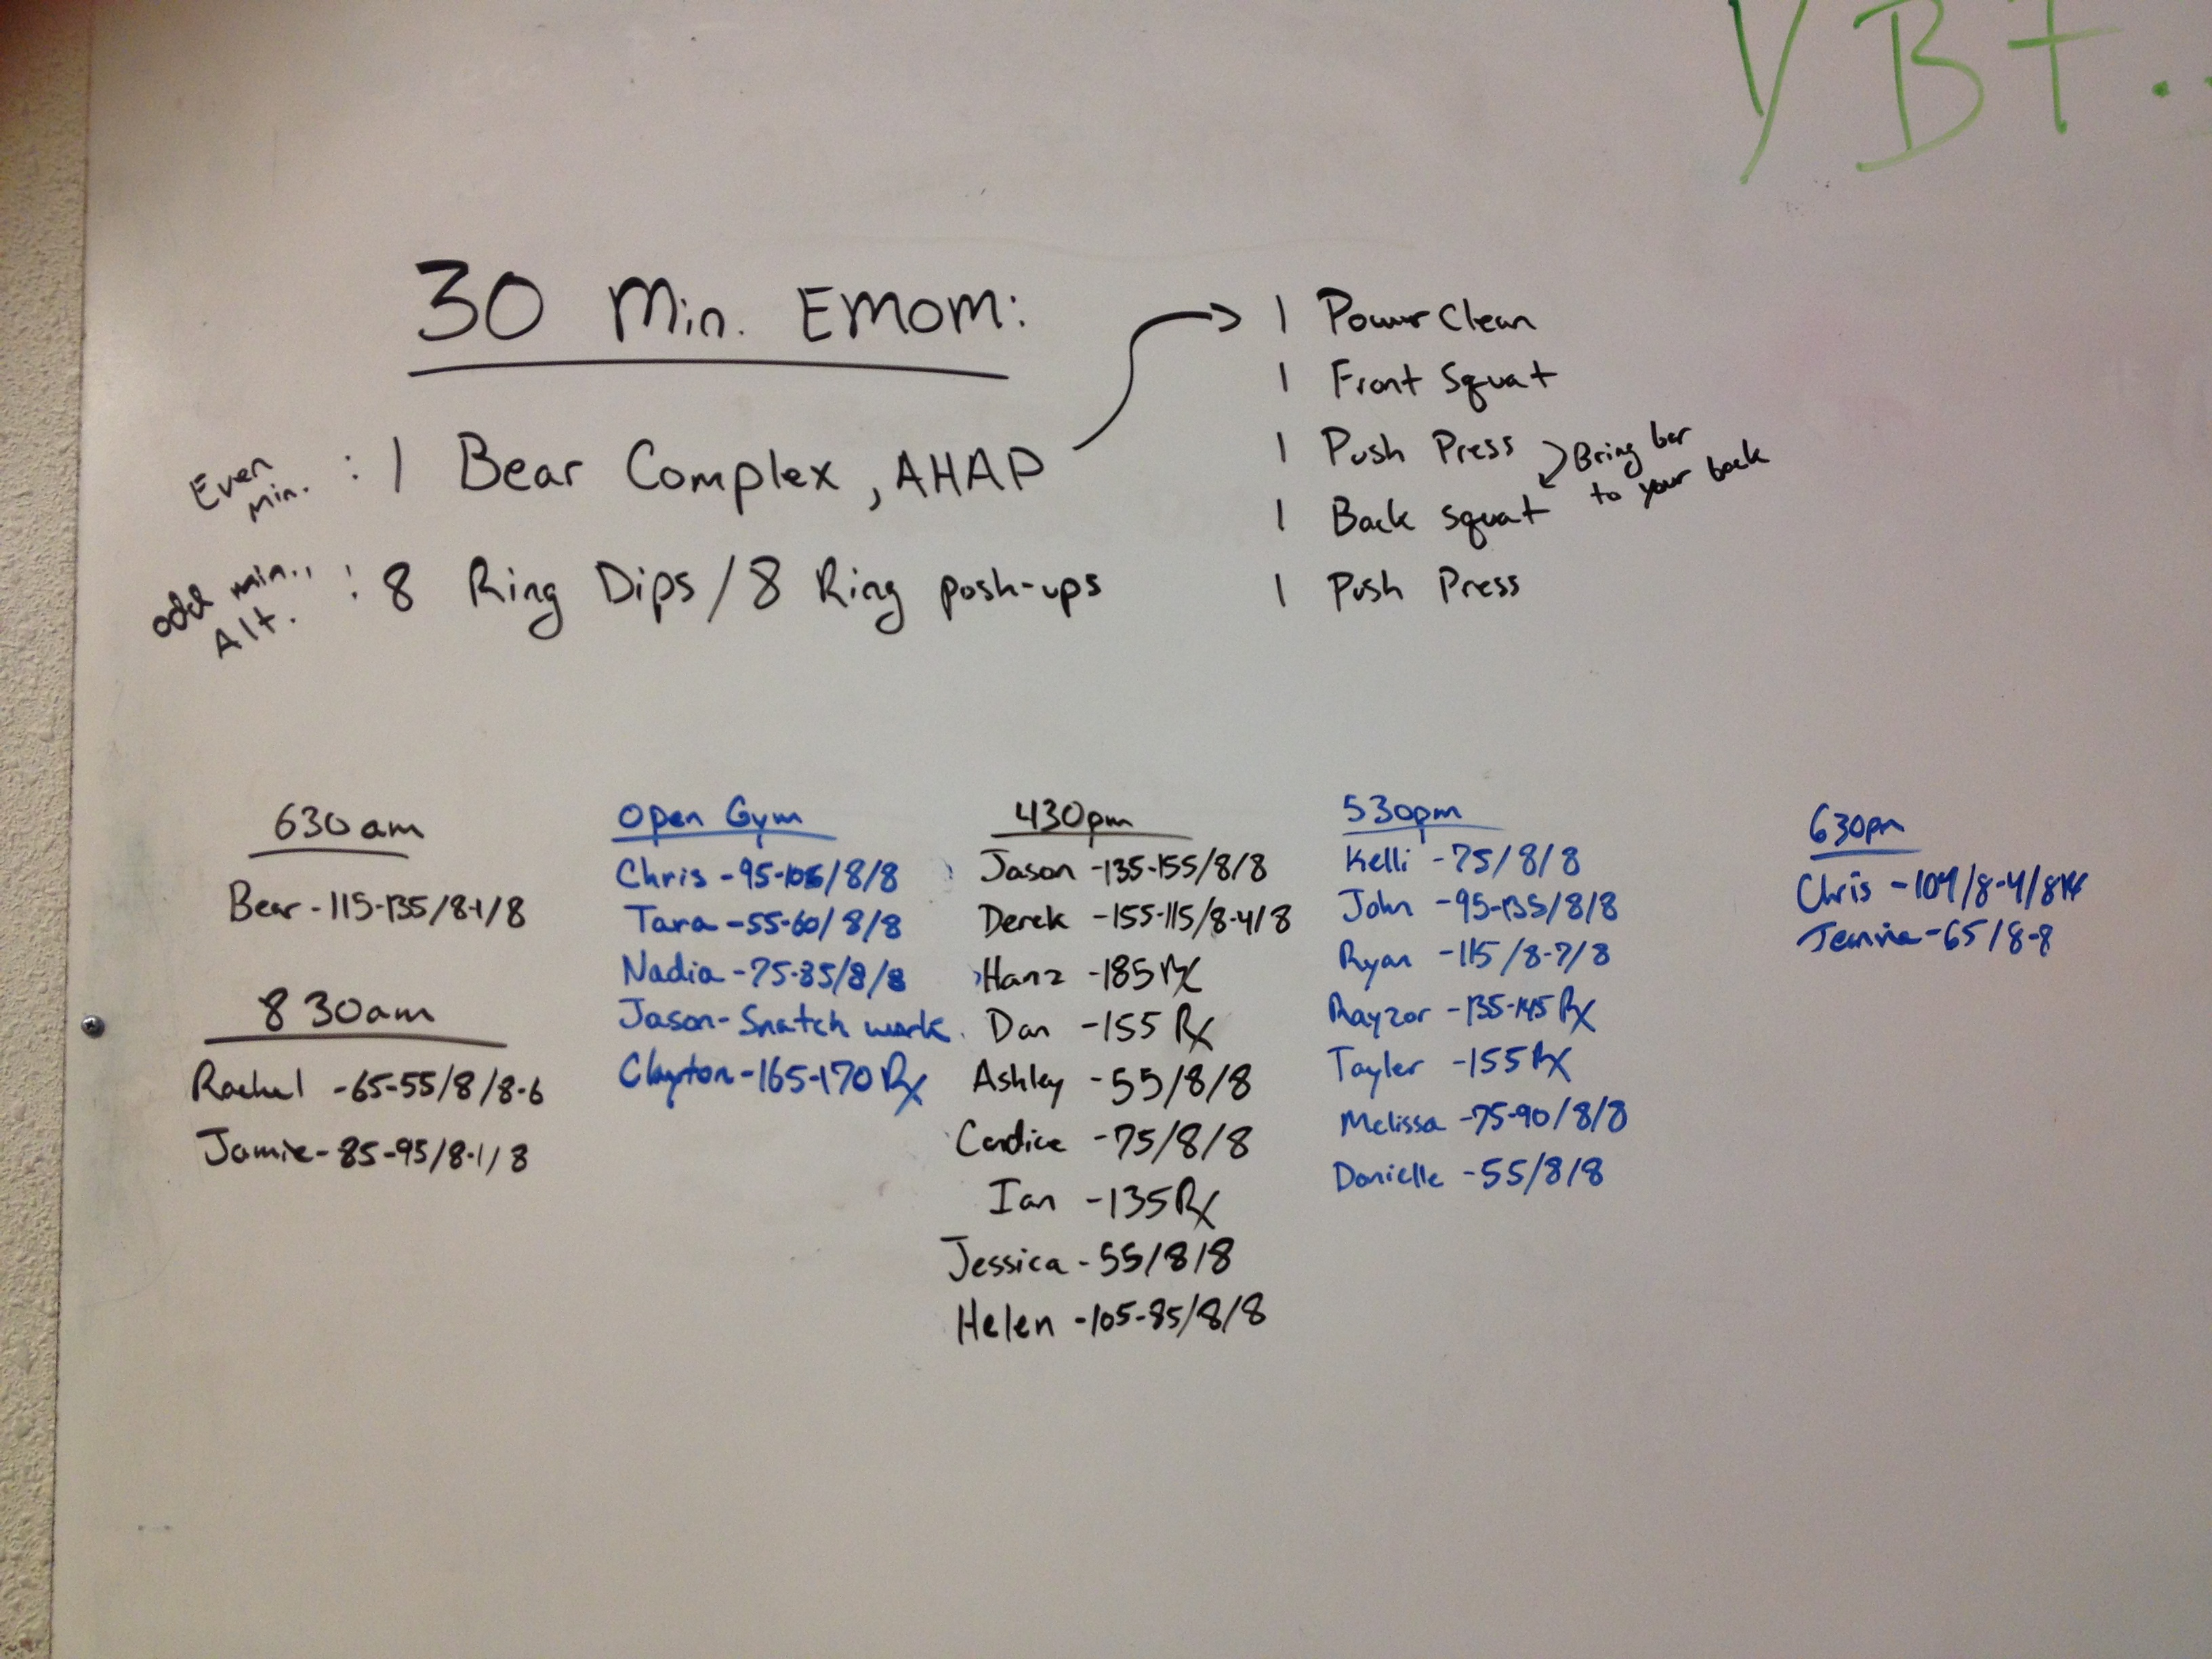 VBT..
30 Min. EMOM:
Even Min. : 1 Bear Complex, AHAP
odd min., Alt. : 8 Ring Dips/8 Ring push-ups
1 Power Clean
1 Front Squat
1 Push Press
Bring bar
to your back
1 Back squat
1 Push Press
630am
Bear-115-135/8-1/8
830am
Rachel -65-55/8/8-6
Jamie-85-95/8-1/8
Open Gym
Chris-95-105/8/8
Tara-55-60/8/8
Nadia-75-85/8/8
Jason-Snatch work
Clayton-165-170 Rx
430pm
Jason -135-155/8/8
Derek -155-115/8-4/8
Hanz -185 Rx
Dan -155 Rx
Ashley -55/8/8
Candice -75/8/8
Ian -135 Rx
Jessica-55/8/8
Helen -105-85/8/8
530pm
Kelli -75/8/8
John -95-135/8/8
Ryan -115/8-7/8
Rayzor -135-145 Rx
Tayler -155 Rx
Melissa -75-90/8/8
Danielle -55/8/8
630pm
Chris -104/8-4/8
-65/8-8